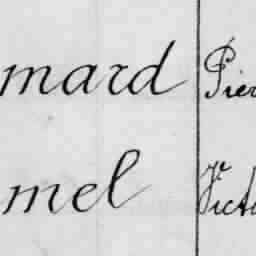 mard Pier
mel Victo